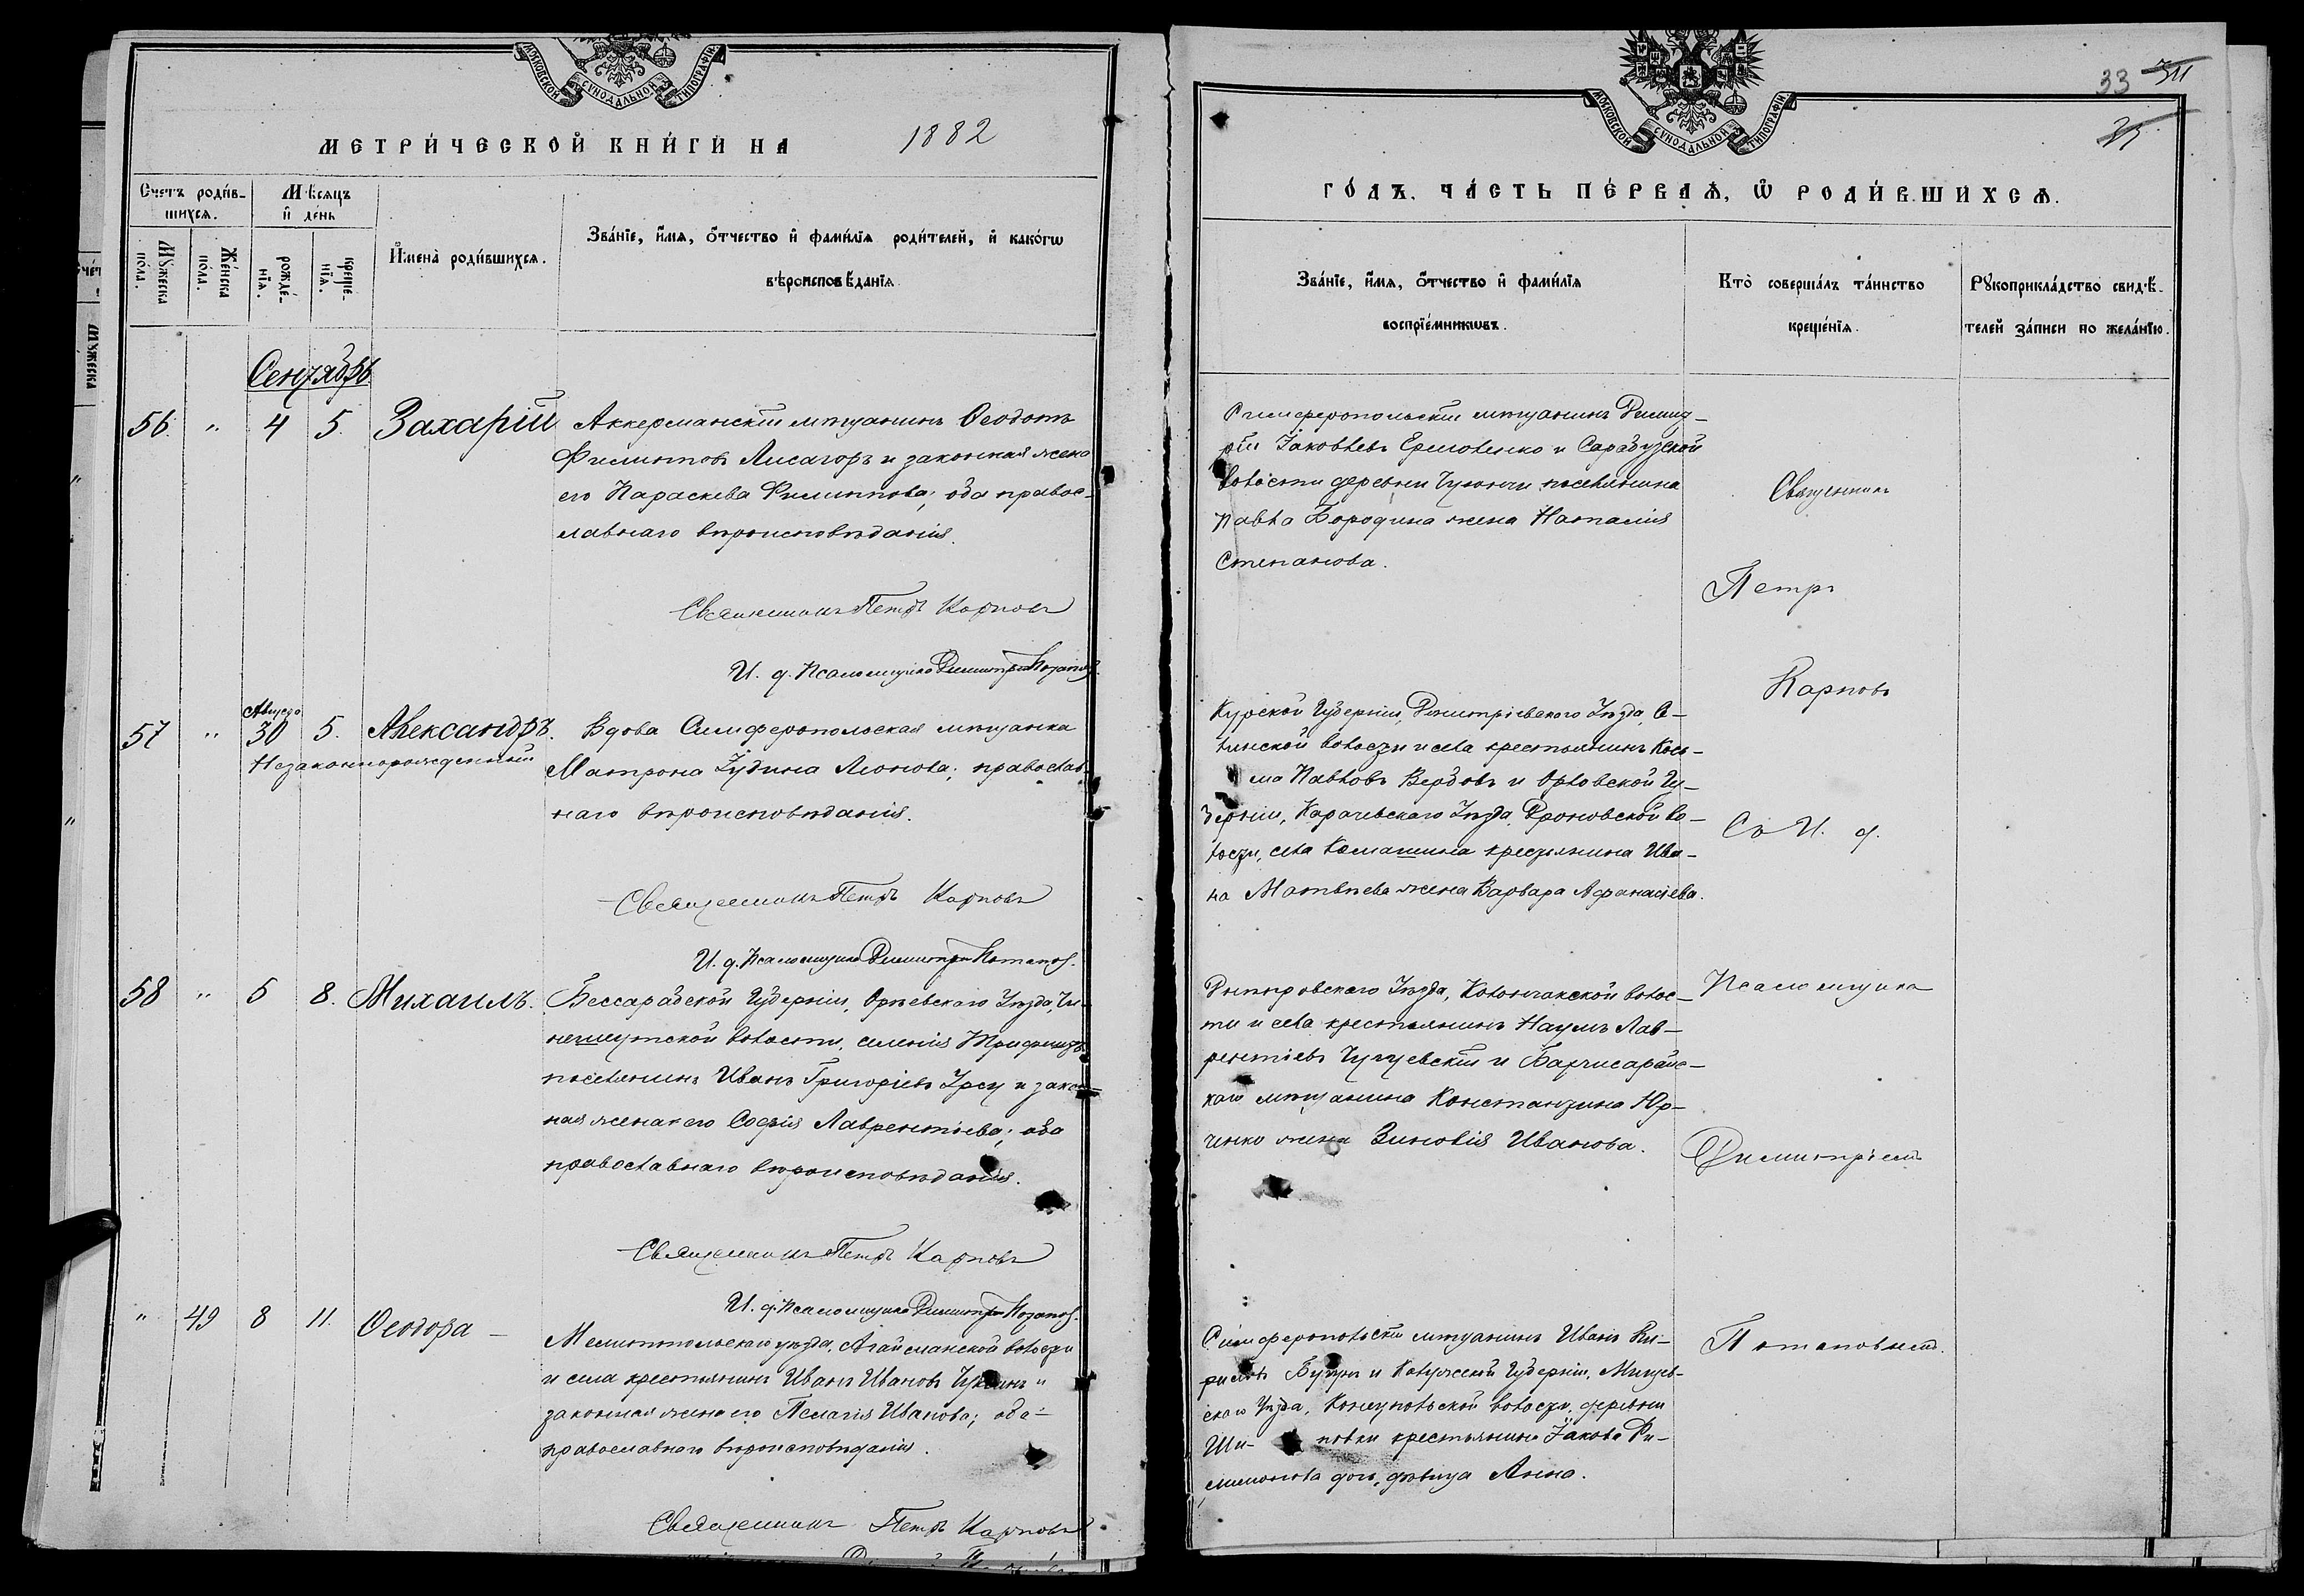 МОСКОВСКОЙ СѴНОДАЛЬНОЙ ТИПОГРАФІИ.
МЕТРИ́ЧЕСКОЙ КНИ́ГИ НА 1882
Счетъ роди́в-
шихсѧ.
Мꙋ́жеска
по́ла.
Же́нска
по́ла.
Мѣ́сѧцъ
и҆ де́нь
рожде́-
нїѧ.
креще́-
нїѧ.
И҆мена̀ роди́вшихсѧ.
Зва́нїе, и҆́мѧ, ѻ҆́тчество и҆ фами́лїѧ роди́телей, и҆ како́гѡ
вѣроисповѣ́данїѧ
Сентябрь
56. " 4 5. Захарій
Аккерманскій мѣщанинъ Ѳеодотъ
Филиповъ Лисагоръ и законная жена
его Параскева Филиппова; оба правос-
лавнаго вѣроисповѣданія.
Священникъ Петръ Карповъ
И. д. Псаломщика Димитрій Потаповъ.
57 " Августа 30 5. Александръ.
Незаконнорожденный
Вдова Симферопольская мѣщанка
Матрона Іудина Леонова; православ-
наго вѣроисповѣданія.
Священникъ Петръ Карповъ
И. д. Псаломщика Димитрій Потаповъ.
58 " 5 8. Михаилъ.
Бессарабской Губерніи, Оргѣевскаго Уѣзда, Чи-
нешеутской волости, селенія
поселянинъ Иванъ Григорьевъ Урсу и закон-
ная жена его Софія Лаврентіева; оба
православнаго вѣроисповѣданія.
Священникъ Петръ Карповъ
И. д. Псаломщика Димитрій Потаповъ.
" 49 8 11. Ѳеодора
Мелитопольскаго уѣзда, Агайманской волости
и села крестьянинъ Иванъ Ивановъ и
законная жена его Пелагія Иванова; оба
православнаго вѣроисповѣданія.
Священникъ Петръ Карповъ
МОСКОВСКОЙ СѴНОДАЛЬНОЙ ТИПОГРАФІИ.
33
ГО́ДЪ, ЧА́СТЬ ПЕ́РВАѦ, Ѿ РОДИ́ВШИХСѦ.
Зва́нїе, и҆́мѧ, ѻ҆́тчество и҆ фами́лїѧ
воспрїе́мникѡвъ.
Кто̀ соверша́лъ та́инство
креще́нїѧ.
Рꙋкоприкла́дство свидѣ́-
телей за́писи по жела́нїю.
Симферопольскій мѣщанинъ Димит-
рій Іаковлевъ Ермоленко и Сарабузской
волости деревни поселянина
Павла Бородина жена Наталія
Степанова.
Курской Губерніи, Димитріевскаго Уѣзда,
волости и села крестьянинъ Кось-
ма Павловъ Вербовъ и Орловской Гу-
берніи, Карачевскаго Уѣзда, Дроновской во-
лости, села крестьянина Ива-
на Матвѣева жена Варвара Афанасіева.
Днѣпровскаго Уѣзда, Колончакской волос-
ти и села крестьянинъ Наумъ Лав-
рентіевъ Чугуевскій и Бахчисарайс-
каго мѣщанина Константина Юр-
ченко жена Зиновія Иванова.
Симферопольскій мѣщанинъ Иванъ Ки-
риловъ и Калужской Губерніи, Мещов-
скаго Уѣзда, волости, деревни
крестьянина Іакова Фи-
лимонова дочь, дѣвица Анна.
Священникъ
Петръ
Карповъ
Съ И. д.
Псаломщика
Димитріемъ
Потаповымъ.